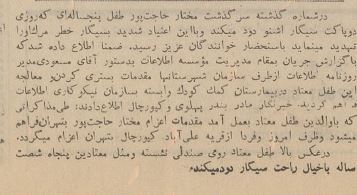 درشماره گذشته سرگذشت مختار حاجت‌پور طفل پنجساله‌ای که‌روزی
دوپاکت سیگار اشنو دود میکند وبااین اعتیاد شدید بسیارگ خطر مرك‌اورا
تهدید مینماید باستحضار خوانندگان عزیز رسید، ضمنا اطلاع داده شدکه
باگزارش جریان بمقام مدیریت مؤسسه اطلاعات بدستور آقای مسعودی‌مدیر
روزنامه اطلاعات ازطرف سازمان شهرستانها مقدمات بستری کردن و معالجه
این طفل معتاد دربیمارستان کمك كودك وابسته بسازمان نیکوکاری اطلاعات
اهم گردید. خبرنگار مادر بندر پهلوی و کپورچال اطلاع‌دادند: طی‌مذاکراتی
که باوالدین طفل معتاد بعمل آمد مقدمات اعزام مختار حاجت‌پور بتهران‌فراهم
میشود وظرف امروز وفردا ازقریه علی‌آباد کپورچال بتهران اعزام میگردد.
درعکس بالا طفل معتاد روی صندلی نشسته ومثل معتادین پنجاه شصت
ساله باخیال راحت سیگار دودمیکند.